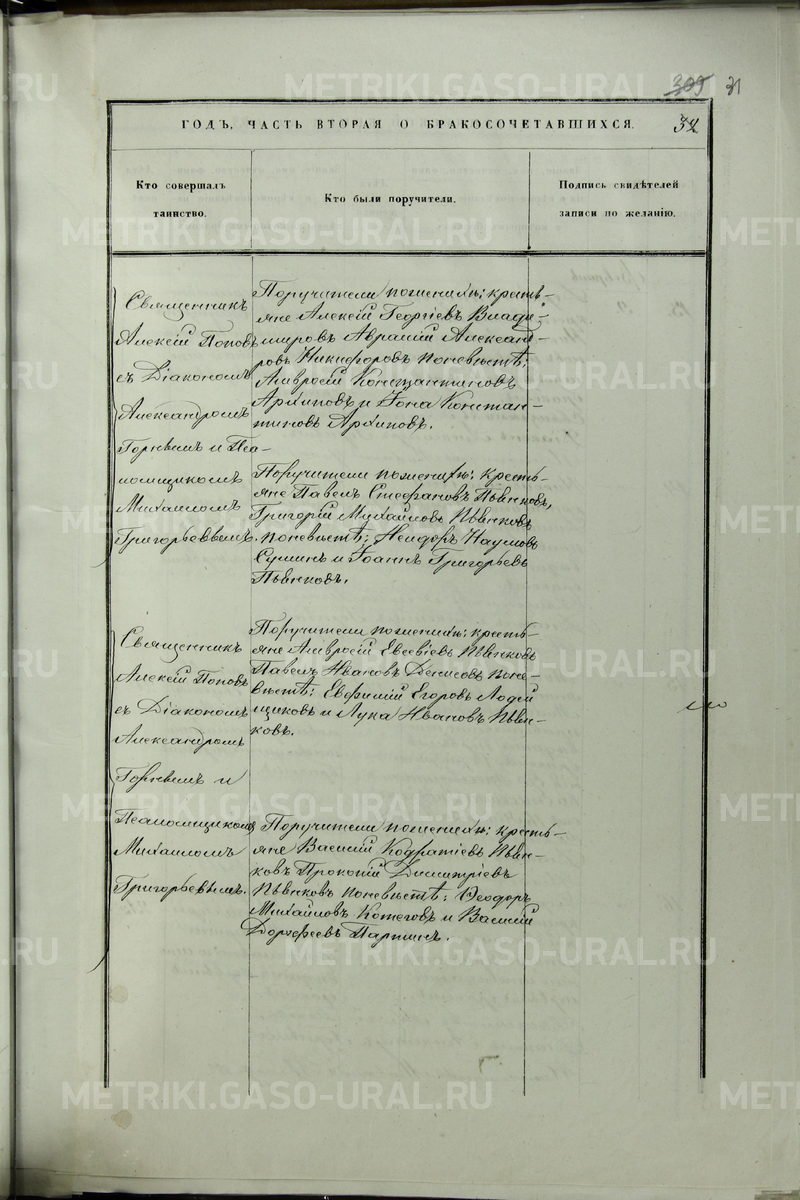 309 31
ГОДЪ, ЧАСТЬ ВТОРАЯ О БРАКОСОЧЕТАВШИХСЯ.
32
Кто совершалъ
таинство.
Кто были поручители.
Подпись свидѣтелей
записи по желанію.
Священникъ
Алексій Поповъ
съ Діакономъ
Александромъ
Горнымъ и Пса-
ломщикомъ
Михаиломъ
Григорьевымъ.
Поручители по женихѣ: кресть-
яне Алексій Георгіевъ Влади-
мировъ Аврамій Александ-
ровъ Никифоровъ по невѣстѣ;
Амвросій Константиновъ
Архиповъ и Іона Констан-
тиновъ Архиповъ.
Поручители по женихѣ: кресть-
яне Павелъ Стефановъ Пьянковъ,
Григорій Михайловъ Пьянковъ
по невѣстѣ; Наумовъ
и Іоаннъ Григорьевъ
Пьянковъ.
Священникъ
Алексій Поповъ
съ Діакономъ
Александромъ
Горнымъ и
Псаломщикомъ
Михаиломъ
Григорьевымъ.
Поручители по женихѣ: кресть-
яне Амвросій Евсевіевъ Пьянковъ
Павелъ Ивановъ Денисовъ по не-
вѣстѣ: Евфимій Егоровъ Лодей
щиковъ и Лука Ивановъ Пьян-
ковъ.
Поручители по женихѣ: кресть-
яне Василій Кодратіевъ Пьян-
ковъ Прокопій Димитріевъ
Пьянковъ по невѣстѣ: Ѳеодоръ
Михайловъ Котеговъ и Василій
Дорофеевъ Паршинъ.
METRIKI.GASO-URAL.RU